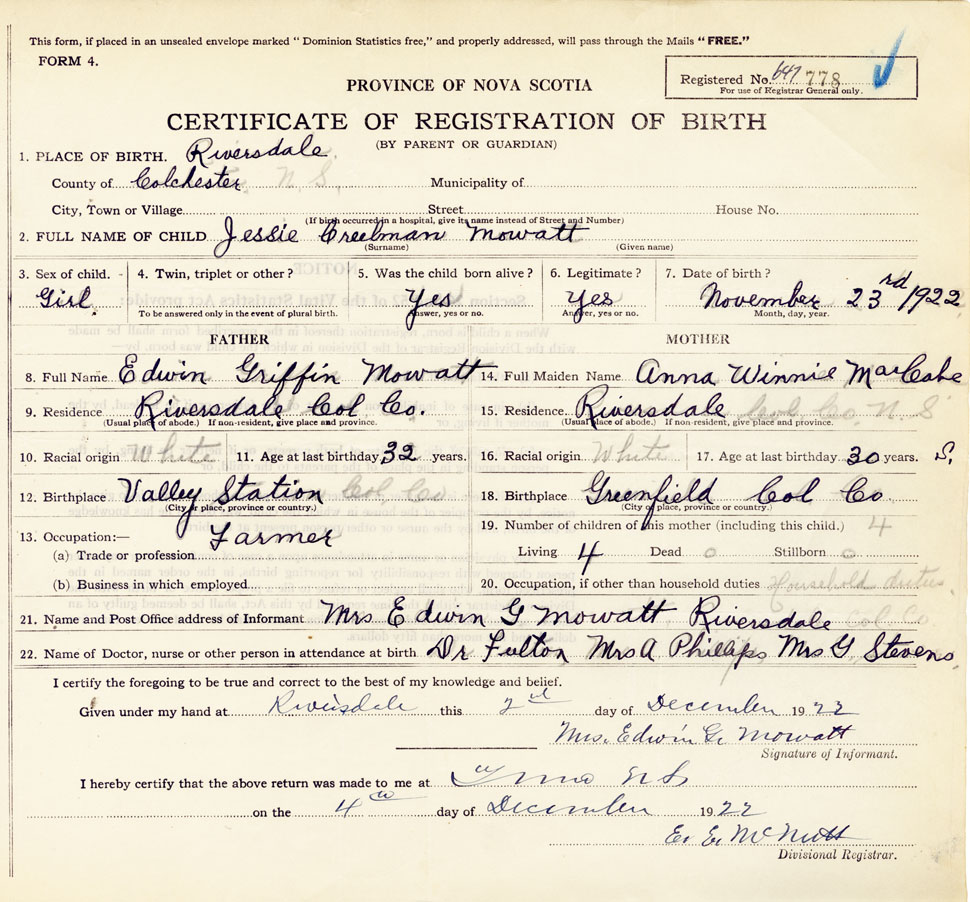 This form, if placed in an unsealed envelope marked " Dominion Statistics free," and properly addressed, will pass through the Mails " FREE."
FORM 4.
PROVINCE OF NOVA SCOTIA
Registered No. 647 778
For use of Registrar General only.
CERTIFICATE OF REGISTRATION OF BIRTH
(BY PARENT OR GUARDIAN)
1. PLACE OF BIRTH. Riversdale
County of Colchester N. S. Municipality of
City, Town or Village Street House No.
(If birth occurred in a hospital, give its name instead of Street and Number)
2. FULL NAME OF CHILD Jessie Creelman Mowatt
(Surname) (Given name)
3. Sex of child. 4. Twin, triplet or other? 5. Was the child born alive? 6. Legitimate? 7. Date of birth?
Girl Yes Yes November 23rd 1922
To be answered only in the event of plural birth. Answer, yes or no. Answer, yes or no. Month, day, year.
FATHER MOTHER
8. Full Name Edwin Griffin Mowatt 14. Full Maiden Name Anna Winnie MacCabe
9. Residence Riversdale Col Co. 15. Residence Riversdale Col Co N S
(Usual place of abode.) If non-resident, give place and province. (Usual place of abode.) If non-resident, give place and province.
10. Racial origin White 11. Age at last birthday 32 years. 16. Racial origin White 17. Age at last birthday 30 years. S.
12. Birthplace Valley Station Col Co 18. Birthplace Greenfield Col Co
(City or place, province or country.) (City or place, province or country.)
13. Occupation:— Farmer 19. Number of children of this mother (including this child.) 4
(a) Trade or profession Living 4 Dead 0 Stillborn 0
(b) Business in which employed 20. Occupation, if other than household duties Household duties
21. Name and Post Office address of Informant Mrs Edwin G Mowatt Riversdale Col Co
22. Name of Doctor, nurse or other person in attendance at birth Dr Fulton Mrs A Phillips Mrs G Stevens
I certify the foregoing to be true and correct to the best of my knowledge and belief.
Given under my hand at Riversdale this 2nd day of December 1922
Mrs. Edwin G. Mowatt
Signature of Informant.
I hereby certify that the above return was made to me at Truro N S
on the 4th day of December 1922
E. E. McNutt
Divisional Registrar.